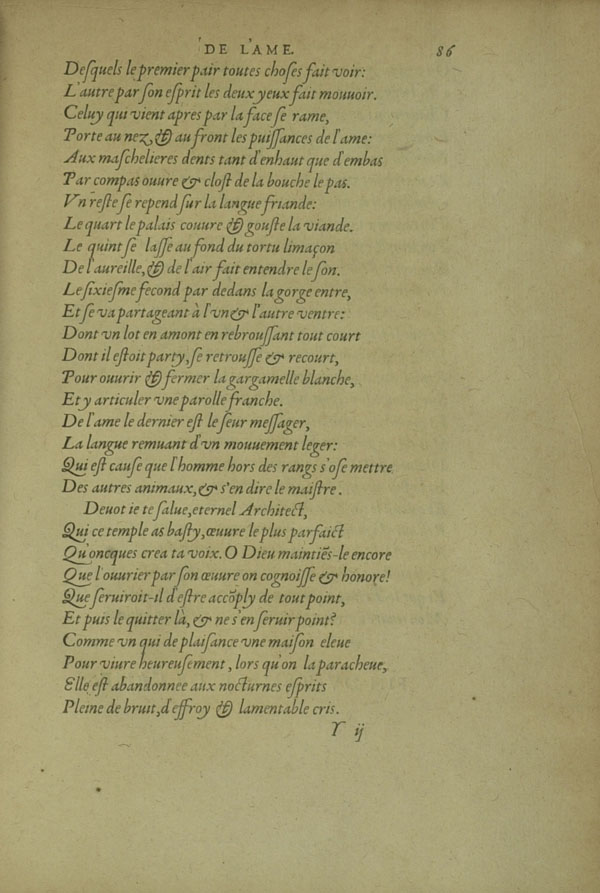 DE L'AME. 86
Desquels le premier pair toutes choses fait voir:
L'autre par son esprit les deux yeux fait mouuoir.
Celuy qui vient apres par la face se rame,
Porte au nez, & au front les puissances de l'ame:
Aux maschelieres dents tant d'enhaut que d'embas
Par compas ouure & clost de la bouche le pas.
Vn reste se repend sur la langue friande:
Le quart le palais couure & gouste la viande.
Le quint se lasse au fond du tortu limaçon
De l'aureille, & de l'air fait entendre le son.
Le sixiesme fecond par dedans la gorge entre,
Et se va partageant à l'vn & l'autre ventre:
Dont vn lot en amont en rebroussant tout court
Dont il estoit party, se retrousse & recourt,
Pour ouurir & fermer la gargamelle blanche,
Et y articuler vne parolle franche.
De l'ame le dernier est le seur messager,
La langue remuant d'vn mouuement leger:
Qui est cause que l'homme hors des rangs s'ose mettre
Des autres animaux, & s'en dire le maistre.
Deuot ie te salue, eternel Architect,
Qui ce temple as basty, œuure le plus parfaict
Qu'oncques crea ta voix. O Dieu maintiẽs-le encore
Que l'ouurier par son œuure on cognoisse & honore!
Que seruiroit-il d'estre accõply de tout point,
Et puis le quitter là, & ne s'en seruir point?
Comme vn qui de plaisance vne maison eleue
Pour viure heureusement, lors qu'on la paracheue,
Elle est abandonnee aux nocturnes esprits
Pleine de bruit, d'effroy & lamentable cris.
Y ij